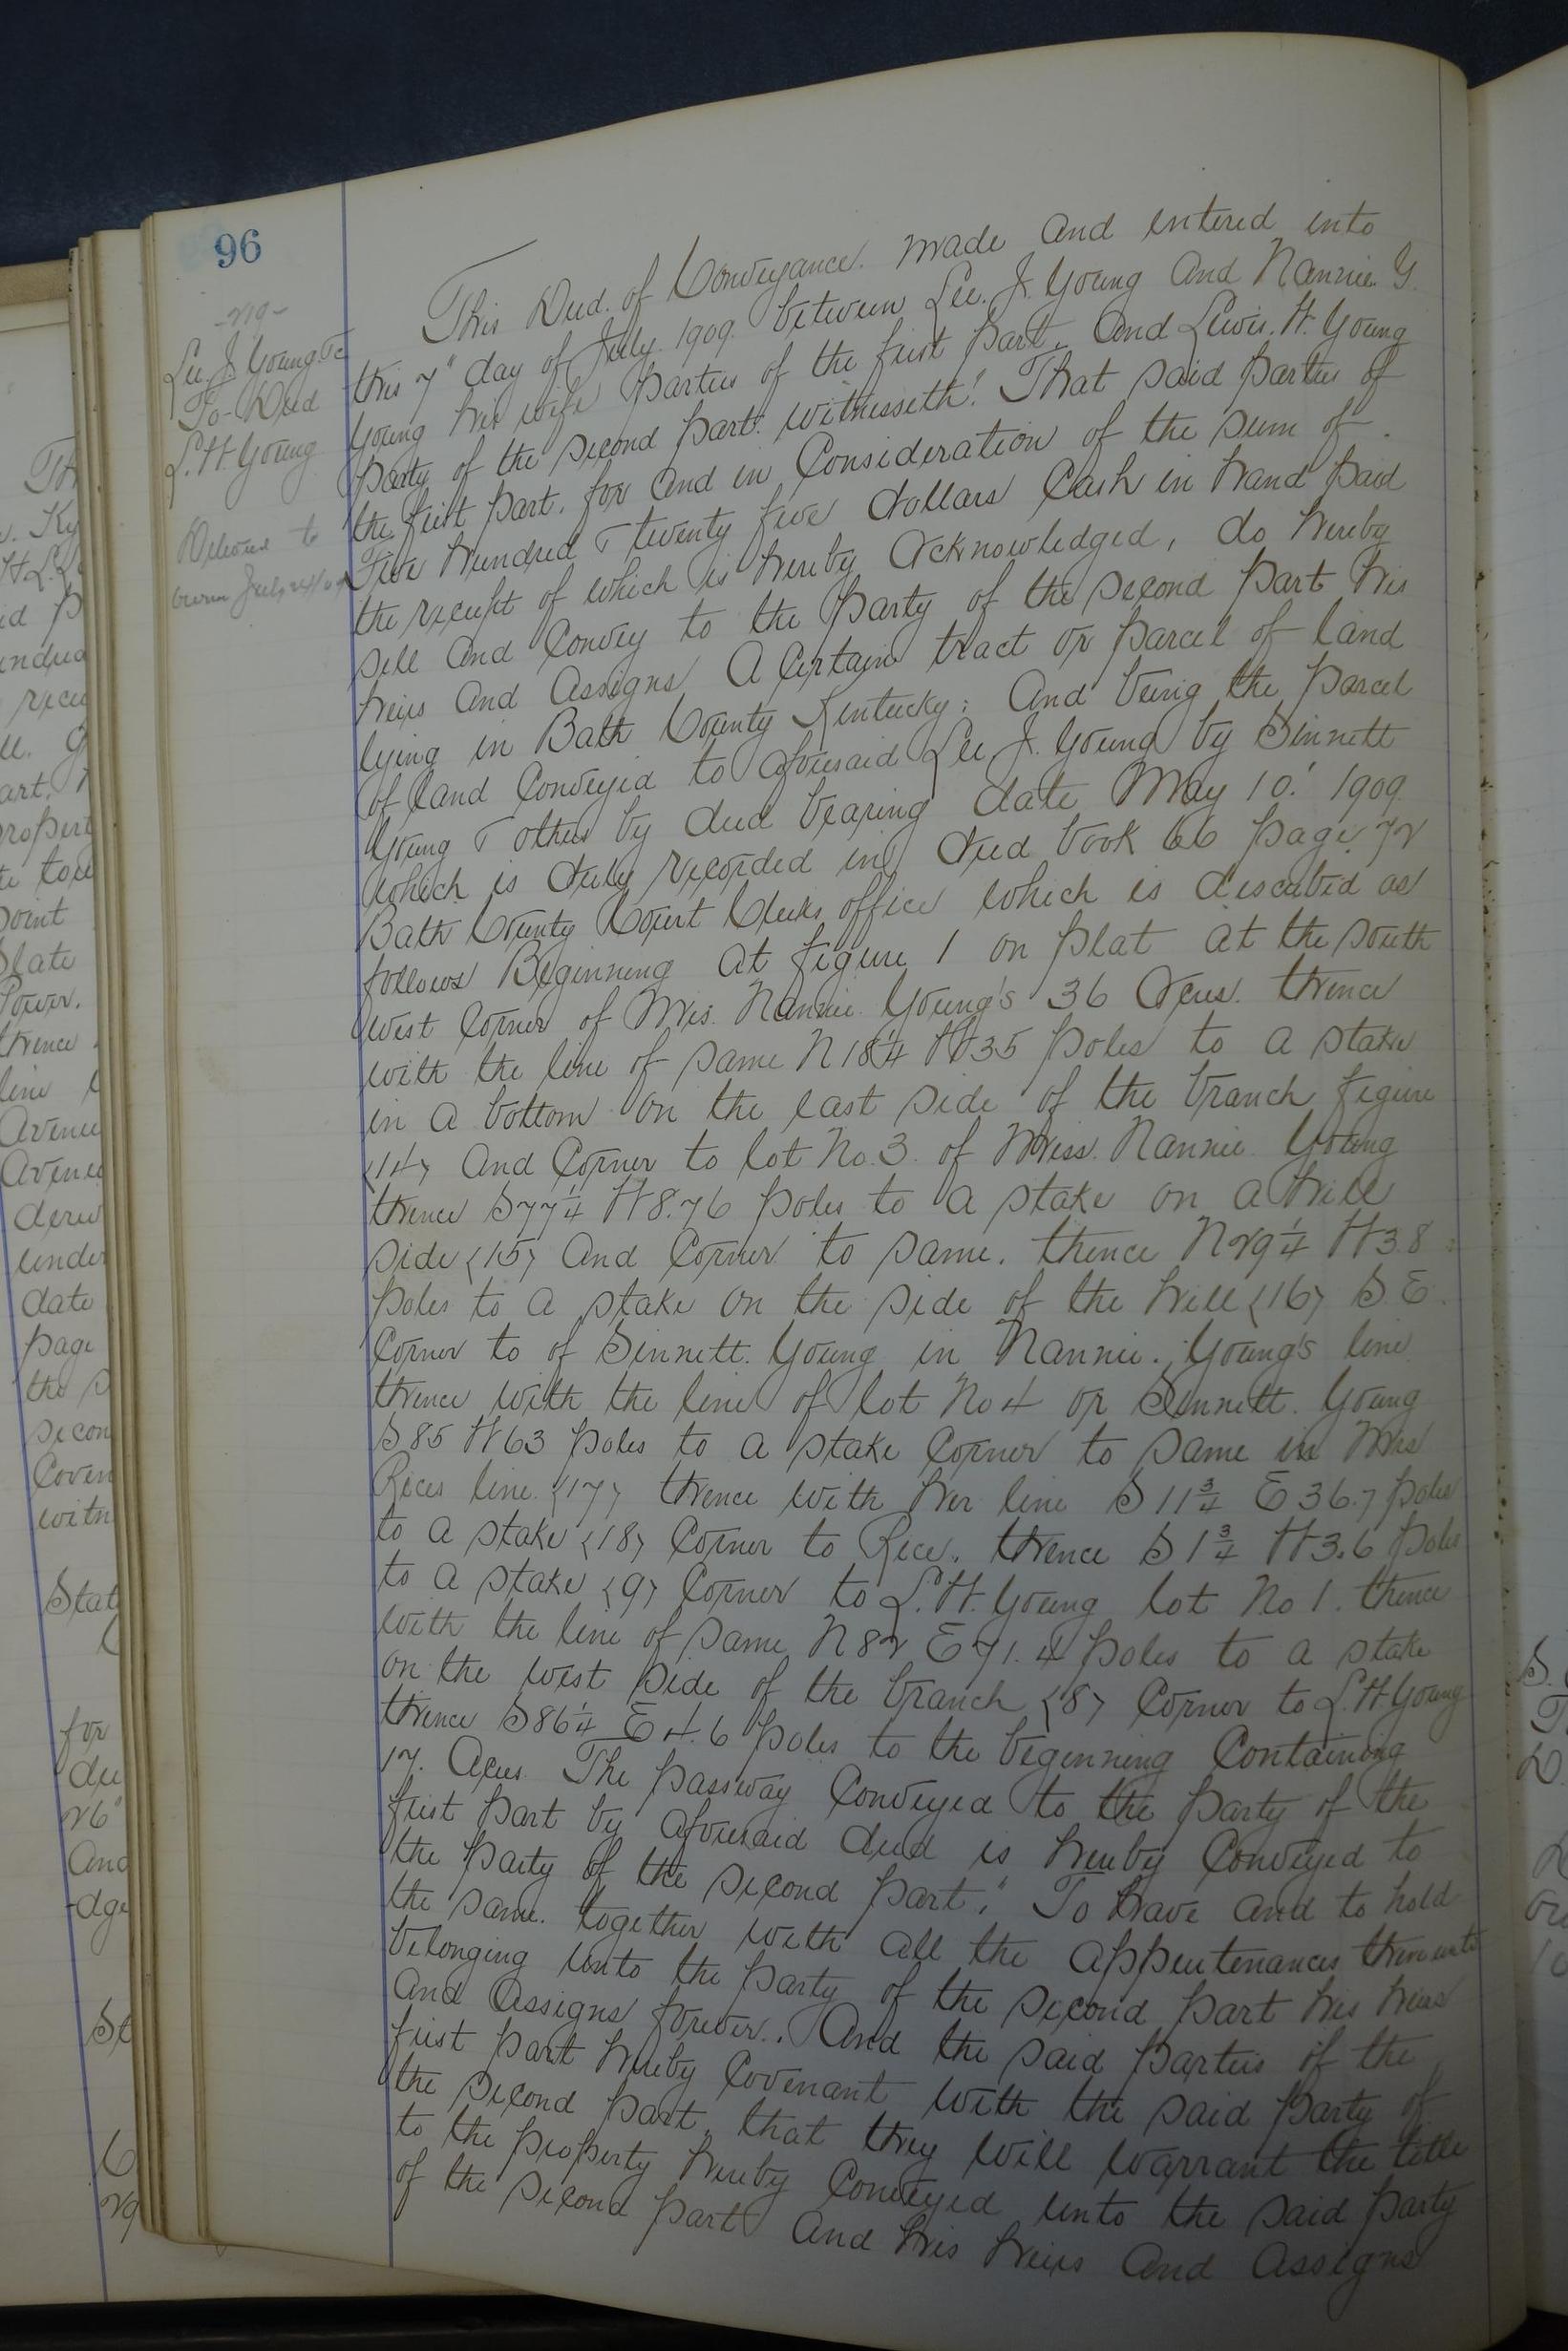 96
-219-
Lee. J. Young &c
To - Deed
L. H. Young
to
This Deed. of Conveyance. made and entered into
this 7" day of July. 1909. between Lee. J. Young and Nannie. G.
Young his wife parties of the first part, and Lewis. H. Young
party of the second part. witnesseth". That said parties of
the first part. for and in Consideration of the sum of
Five hundred & twenty five dollars Cash in hand paid
the receipt of which is hereby acknowledged, do hereby
sell and Convey to the party of the second part his
heirs and assigns a Certain tract or parcel of land
lying in Bath County Kentucky; and being the parcel
of land Conveyed to aforesaid Lee J. Young by Sinnett
Young & others by deed bearing date May 10" 1909
which is duly recorded in deed book 66 page 72
Bath County Court Clerks office which is described as
follows Beginning at figure 1 on plat at the south
west Corner of Mrs. Nannie Young's 36 acres. thence
with the line of same N 18¼ W 35 poles to a stake
in a bottom on the east side of the branch figure
<14> and Corner to lot No. 3. of Miss. Nannie Young
thence S 77¼ W 8.76 poles to a stake on a hill
side <15> and Corner to same. thence N 29¼ W 3.8
poles to a stake on the side of the hill <16> S. E.
Corner to of Sinnett. Young in Nannie. Young's line
thence with the line of lot No 4 or Sinnett. Young
S 85 W 63 poles to a stake Corner to same in Mrs
Rices line <17> thence with her line S 11¾ E 36.7 poles
to a stake <18> Corner to Rice. thence S 1¾ W 3.6 poles
to a stake <9> Corner to L. H. Young lot No 1. thence
with the line of same N 82 E 71.4 poles to a stake
on the west side of the branch <8> Corner to L. H Young
thence S 86¼ E 4.6 poles to the beginning Containing
17. Acres. The passway Conveyed to the party of the
first part by aforesaid deed is hereby Conveyed to
the party of the second part." To have and to hold
the same. together with all the appurtenances thereunto
belonging unto the party of the second part his heirs
and assigns forever.. And the said parties of the
first part hereby Covenant with the said party of
the second part, that they will warrant the title
to the property hereby Conveyed unto the said party
of the second part and his heirs and assigns